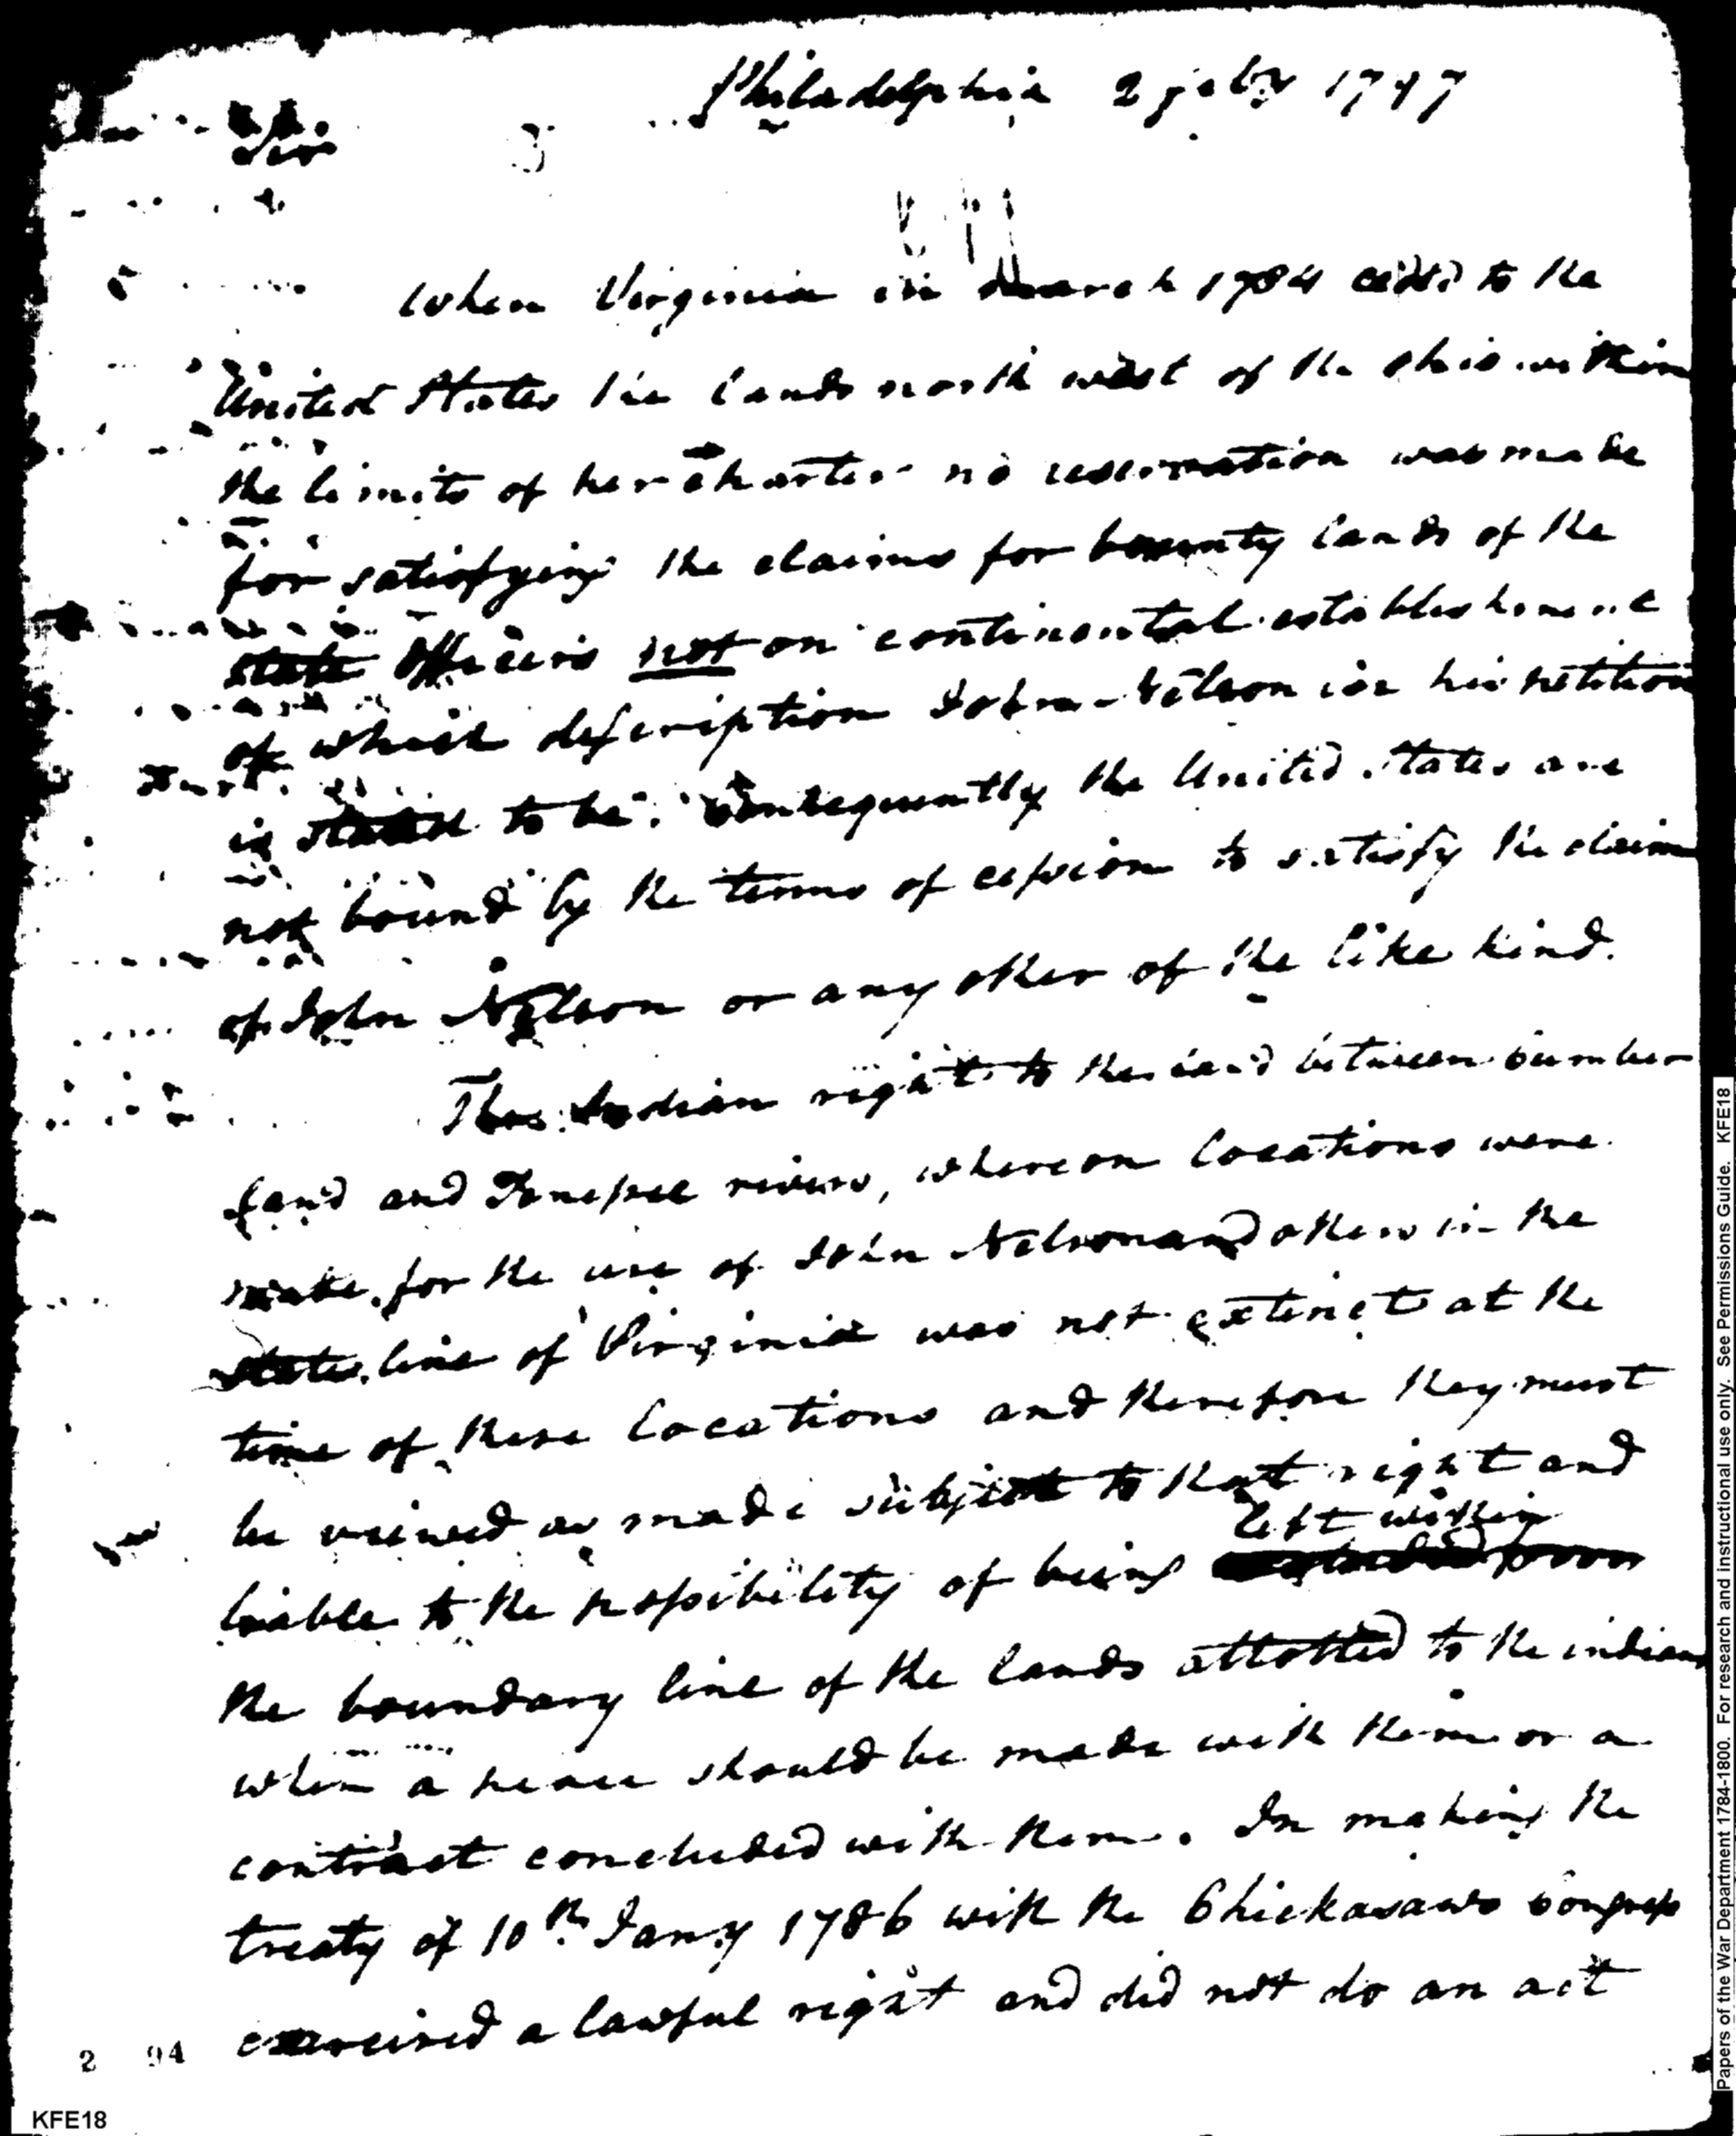 Philadelphia 2 feby 1797
Sir
When Virginia in March 1784 ceded to the
United States the lands north west of the ohio within
the limits of her charter no reservation was made
for satisfying the claims for bounty lands of the
state officers not on continental establishment
of which description John Nelson in his petition
is stated to be. Consequently the United States are
not bound by the terms of cession to satisfy the claim
of John Nelson or any other of the like kind.
The Indian right to the land between Cumber
land and Tenessee rivers, whereon locations were
made for the use of John Nelson and others in the
state line of Virginia was not extinct at the
time of these locations and therefore they must
be viewed as made subject to that right and
left within
liable to the possibility of being
the boundary line of the lands allotted to the indians
when a peace should be made with them or a
contract concluded with them. In making the
treaty of 10th Jany 1786 with the Chickasaws Congress
exercised a lawful right and did not do an act
2 94
KFE18
Papers of the War Department 1784-1800. For research and instructional use only. See Permissions Guide. KFE18